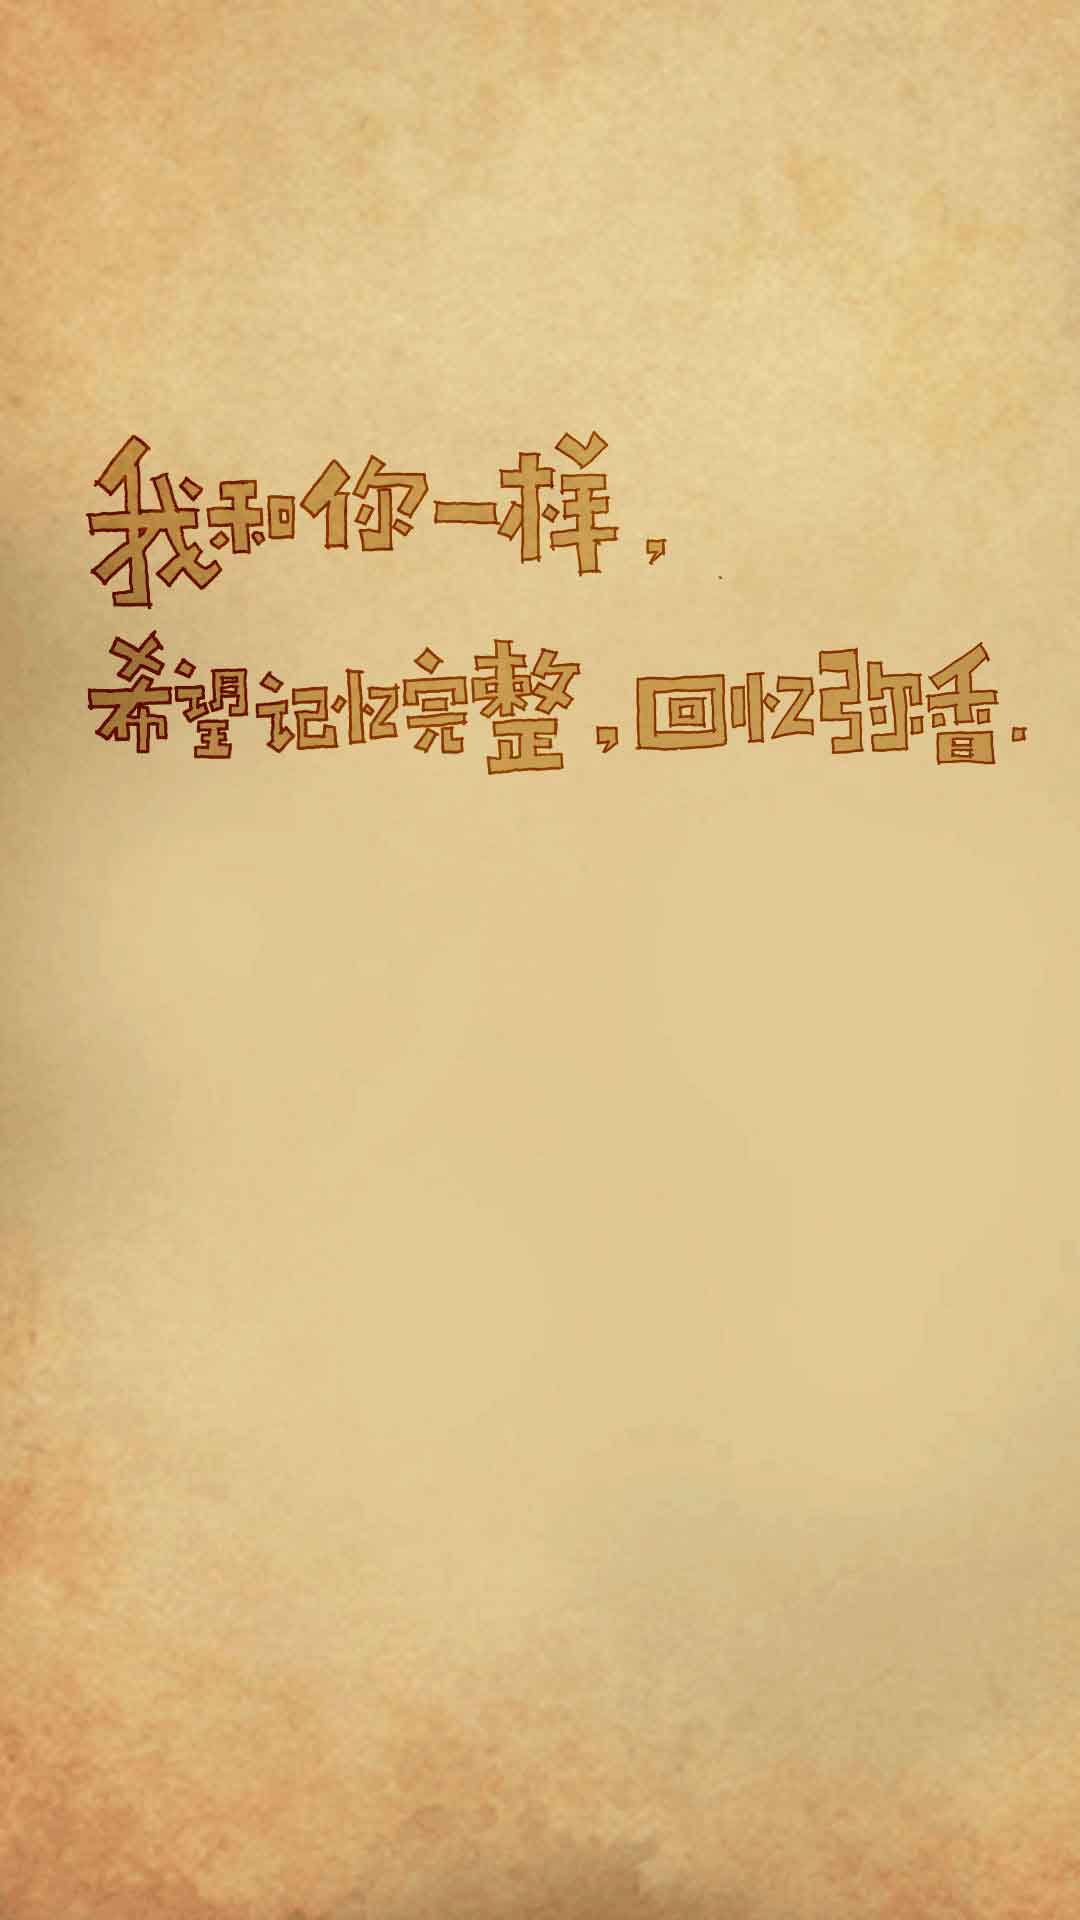 我和你一样，
希望记忆完整，回忆弥香.